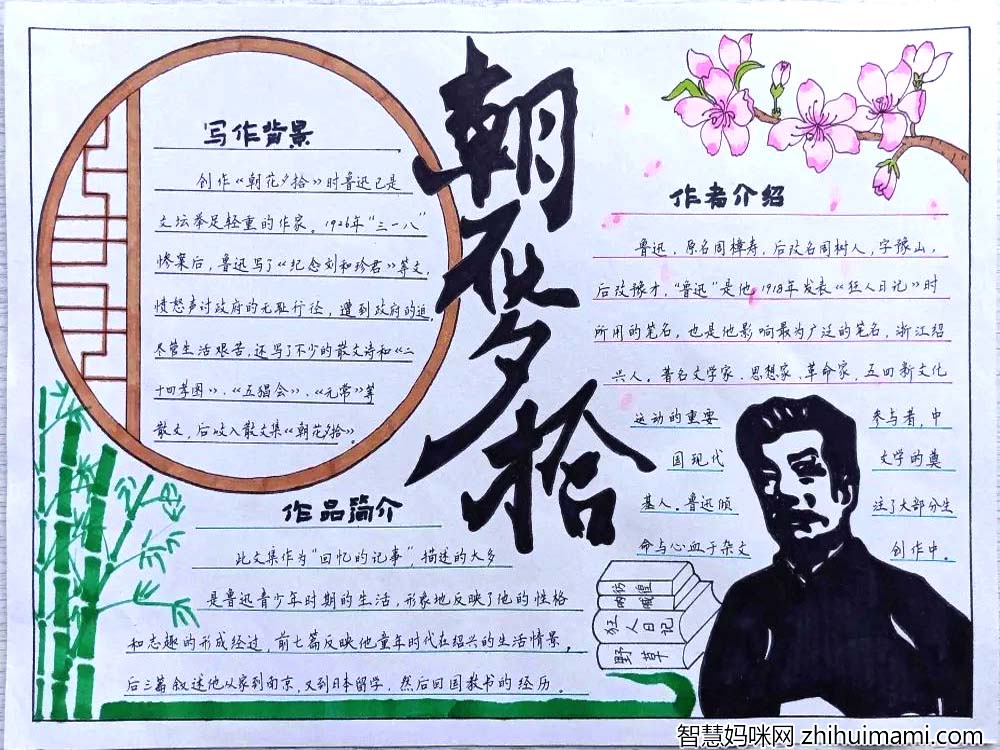 朝花夕拾
写作背景
创作《朝花夕拾》时鲁迅已是
文坛举足轻重的作家。1926年“三一八”
惨案后,鲁迅写了《纪念刘和珍君》等文,
愤怒声讨政府的无耻行径,遭到政府的迫,
尽管生活艰苦,还写了不少的散文诗和《二
十四孝图》、《五猖会》、《无常》等
散文,后收入散文集《朝花夕拾》。
作者介绍
鲁迅,原名周樟寿,后改名周树人,字豫山,
后改豫才,“鲁迅”是他1918年发表《狂人日记》时
所用的笔名,也是他影响最为广泛的笔名,浙江绍
兴人。著名文学家、思想家、革命家,五四新文化
运动的重要 参与者,中
国现代 文学的奠
基人。鲁迅倾 注了大部分生
命与心血于杂文 创作中。
作品简介
此文集作为“回忆的记事”,描述的大多
是鲁迅青少年时期的生活,形象地反映了他的性格
和志趣的形成经过,前七篇反映他童年时代在绍兴的生活情景,
后三篇叙述他从家到南京,又到日本留学,然后回国教书的经历。
彷徨
呐喊
狂人日记
野草
智慧妈咪网 zhihuimami.com